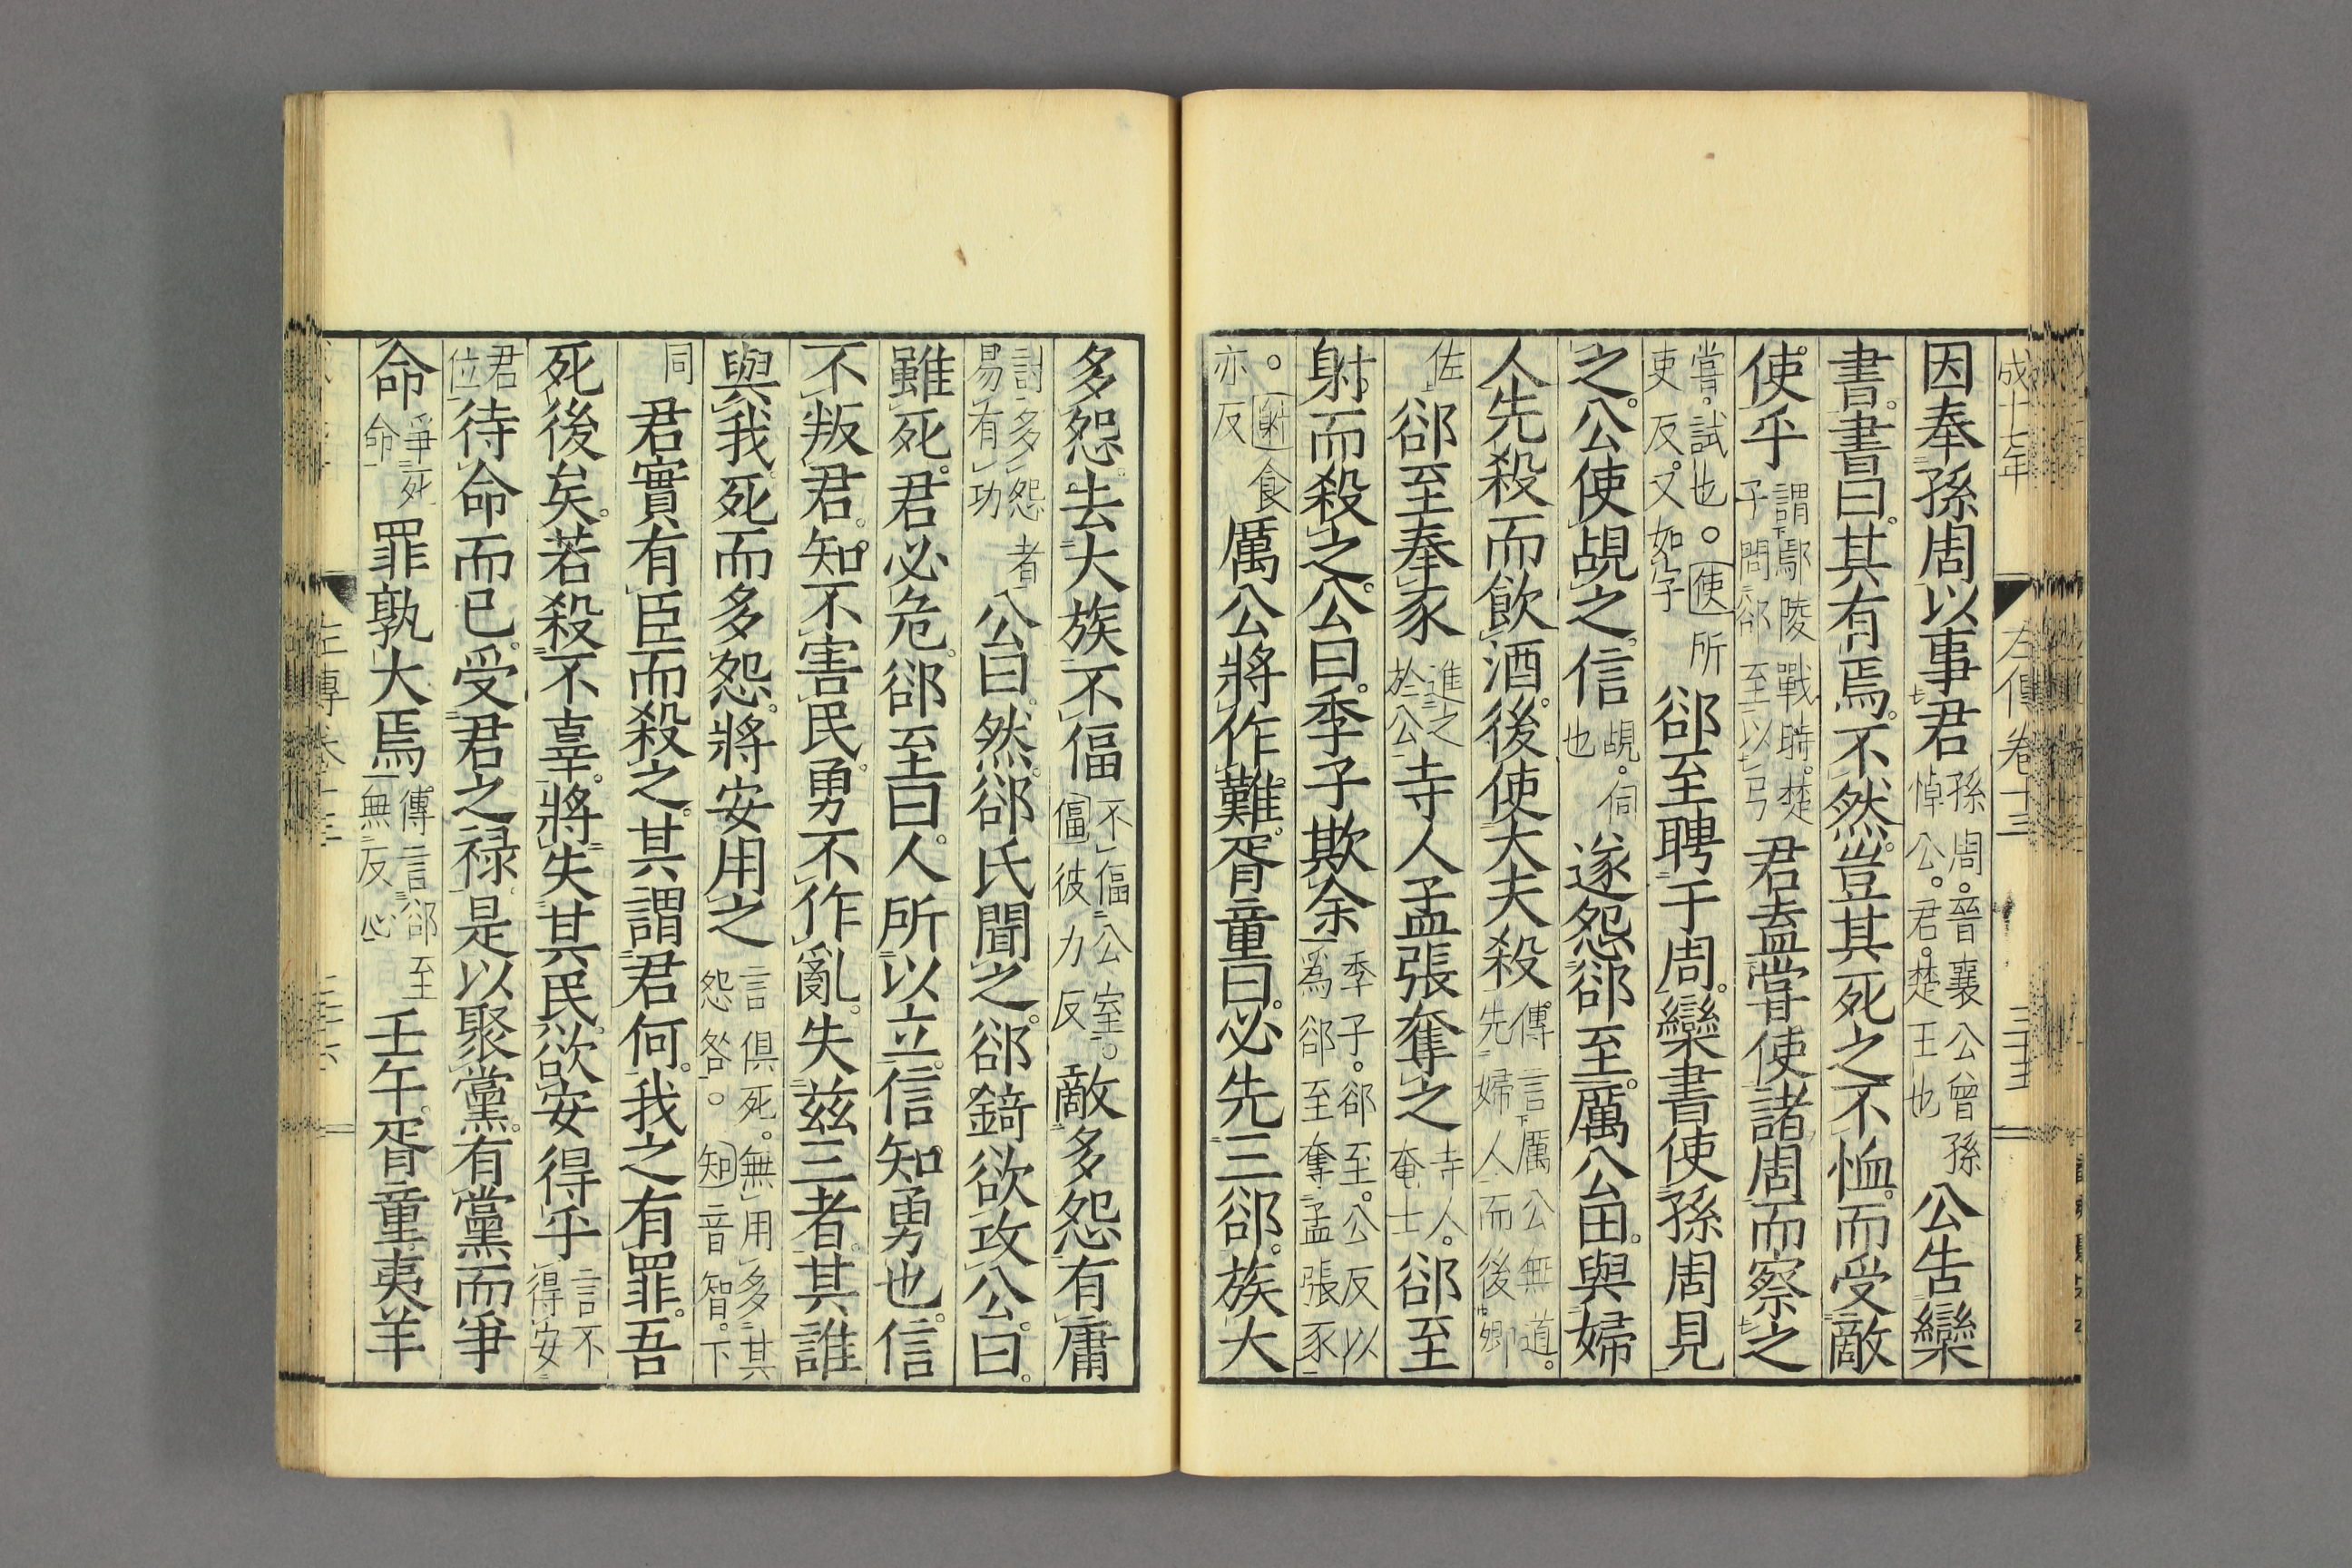 成十七年 左傳卷十三 三十五
因奉孫周以事君孫周晉襄公曾孫悼公君楚王也公告欒
書書曰其有焉不然豈其死之不恤而受敵
使乎謂鄢陵戰時楚子問郤至以弓君盍嘗使諸周而察之
嘗試也○使所吏反又如字郤至聘于周欒書使孫周見
之公使覘之信覘伺也遂怨郤至厲公田與婦
人先殺而飲酒後使大夫殺傳言厲公無道先婦人而後卿
佐郤至奉豕進之於公寺人孟張奪之寺人奄士郤至
射而殺之公曰季子欺余季子郤至公反以爲郤至奪孟張豕
○射食亦反厲公將作難胥童曰必先三郤族大
多怨去大族不偪不偪公室○偪彼力反敵多怨有庸
討多怨者易有功公曰然郤氏聞之郤錡欲攻公曰
雖死君必危郤至曰人所以立信知勇也信
不叛君知不害民勇不作亂失茲三者其誰
與我死而多怨將安用之言俱死無用多其怨咎○知音智下
同君實有臣而殺之其謂君何我之有罪吾
死後矣若殺不辜將失其民欲安得乎言不得安
君位待命而已受君之祿是以聚黨有黨而爭
命爭死命罪孰大焉傳言郤至無反心壬午胥童夷羊